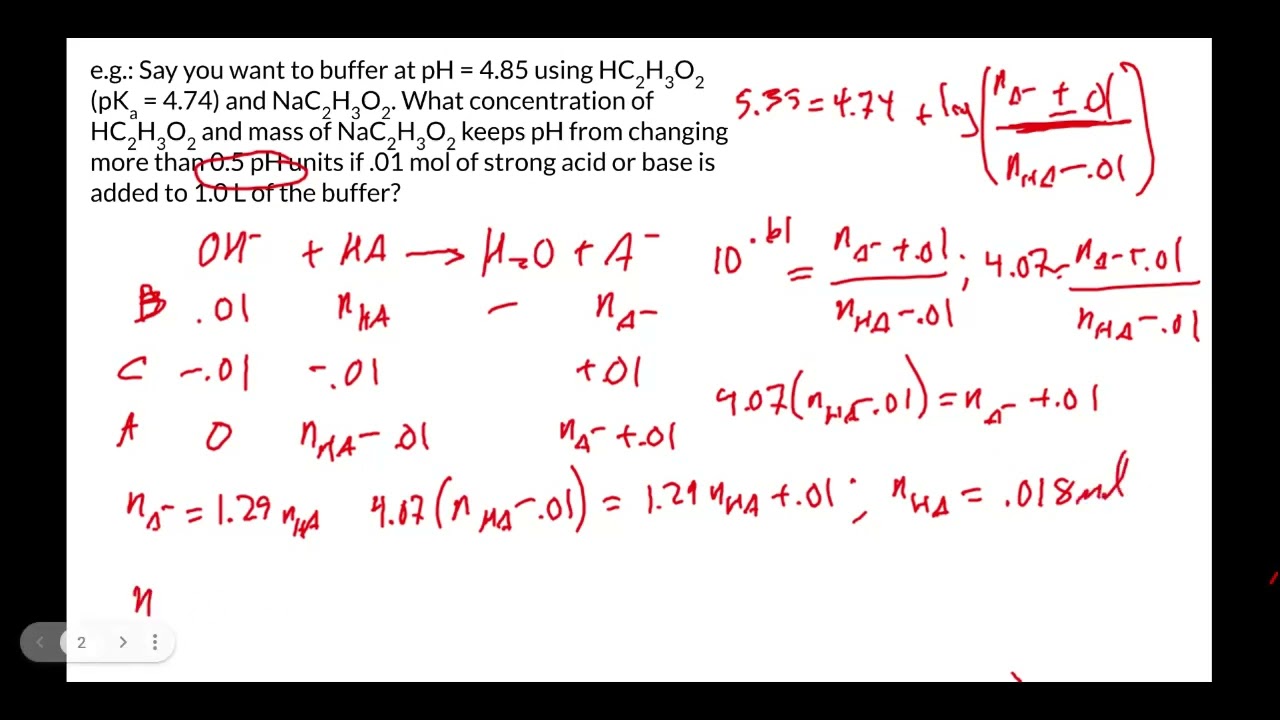 e.g.: Say you want to buffer at pH = 4.85 using HC₂H₃O₂
(pKₐ = 4.74) and NaC₂H₃O₂. What concentration of
HC₂H₃O₂ and mass of NaC₂H₃O₂ keeps pH from changing
more than 0.5 pH units if .01 mol of strong acid or base is
added to 1.0 L of the buffer?
5.35 = 4.74 + log( (n_A⁻ ± .01) / (n_HA - .01) )
OH⁻ + HA → H₂O + A⁻
B .01 n_HA − n_A⁻
C -.01 -.01 +.01
A 0 n_HA - .01 n_A⁻ +.01
10^.61 = (n_A⁻ + .01) / (n_HA - .01) ; 4.07 = (n_A⁻ + .01) / (n_HA - .01)
4.07(n_HA - .01) = n_A⁻ + .01
n_A⁻ = 1.29 n_HA 4.07(n_HA - .01) = 1.29 n_HA + .01 ; n_HA = .018 mol
n
2